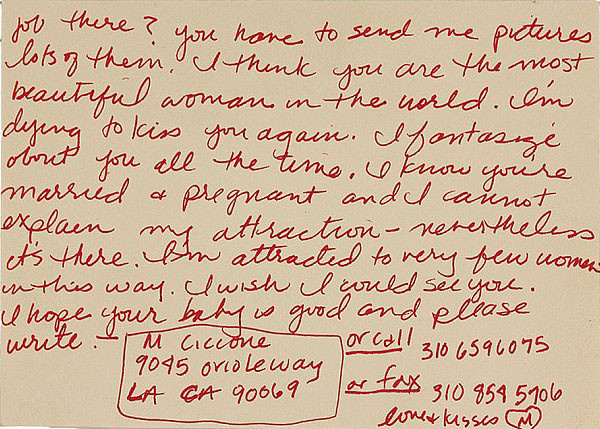 job there? you have to send me pictures
lots of them. I think you are the most
beautiful woman in the world. I'm
dying to kiss you again. I fantasize
about you all the time. I know you're
married & pregnant and I cannot
explain my attraction - nevertheless
it's there. I'm attracted to very few women
in this way. I wish I could see you.
I hope your baby is good and please
write. -
M Ciccone
9045 oriole way
LA CA 90069
or call 310 6596075
or fax 310 854 5706
love & kisses M